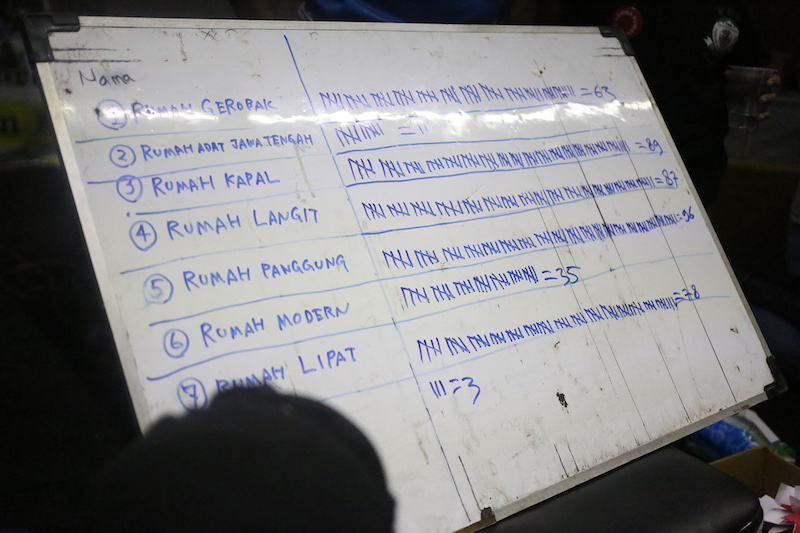 Nama
1 RUMAH GEROBAK = 63
2 RUMAH ADAT JAWA TENGAH = 11
3 RUMAH KAPAL = 89
4 RUMAH LANGIT = 87
5 RUMAH PANGGUNG = 96
6 RUMAH MODERN = 35
7 RUMAH LIPAT = 78
= 3